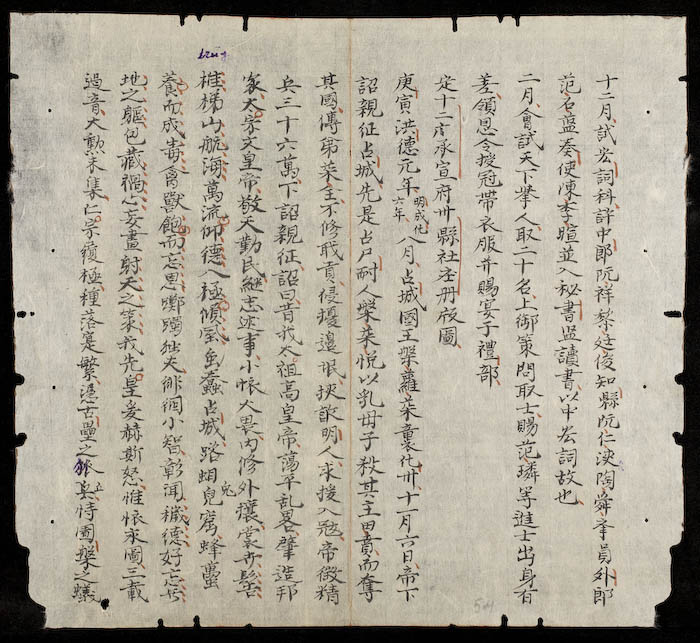 十二月試宏詞科許中郎阮祥黎廷俊知縣阮仁浹陶舜舉員外郎
范名蓝奏使陳李暄並入秘書監讀書以中宏詞故也
二月會試天下舉人取二十名上御策問取士賜范璘等進士出身有
差領恩令授冠帶衣服并賜宴于禮部
定十二處承宣府卅縣社庄册版圖
庚寅洪德元年明成化六年八月占城國王槃羅茶童化卅十一月六日帝下
詔親征占城先是占尸耐人槃茶悦以乳母子秋其主田賁而奪
其國傳弟茶全不修職貢侵擾邊垠挾詐明人求援入冦帝徵精
兵三十六萬下詔親征詔曰昔我太祖高皇帝蕩平乱畧肇造邦
家太宗文皇帝敬天勤民繼志述事小懷大畏内修外攘裳卉髻
椎梯山航海萬流仰德八極傾風虫蠢占城路蝈兒窩蜂蠆兔
養而成毒禽獸飽而忘恩啷躅狂夫徘徊小智彰聞穢德好忘告
地之軀包藏禍心妄畫射天之策我先皇爰赫斯怒惟懷永圖三載
遏音大勳未集仁宗覆極種落寔繁憑古壘之狼兵恃圖槃之蟻